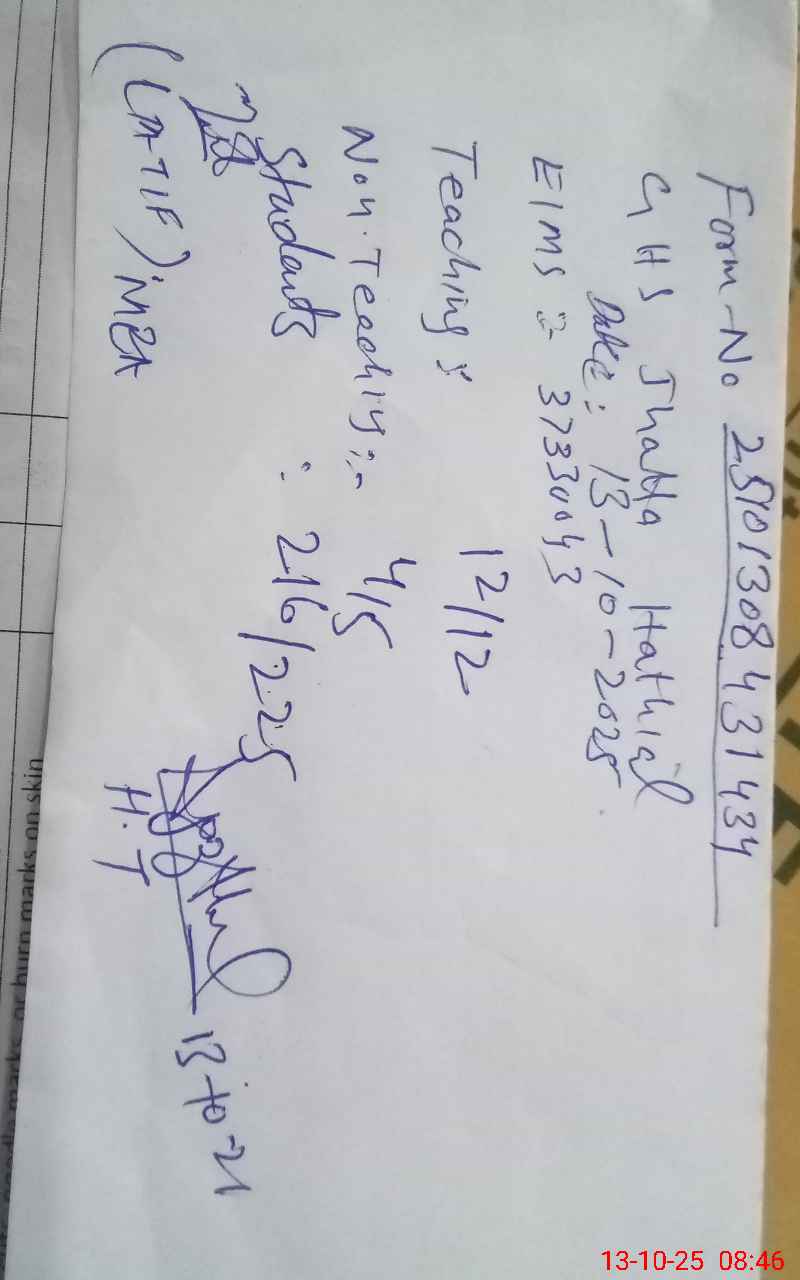 Form-No 25101308431434
GHS Jhatta Hathial
Date: 13-10-2025
EIMS: 37330043
Teaching: 12/12
Non.Teachig:- 4/5
Students : 216/225
H.T
13-10-21
(LATIF) MEA
burn marks on skin
13-10-25 08:46